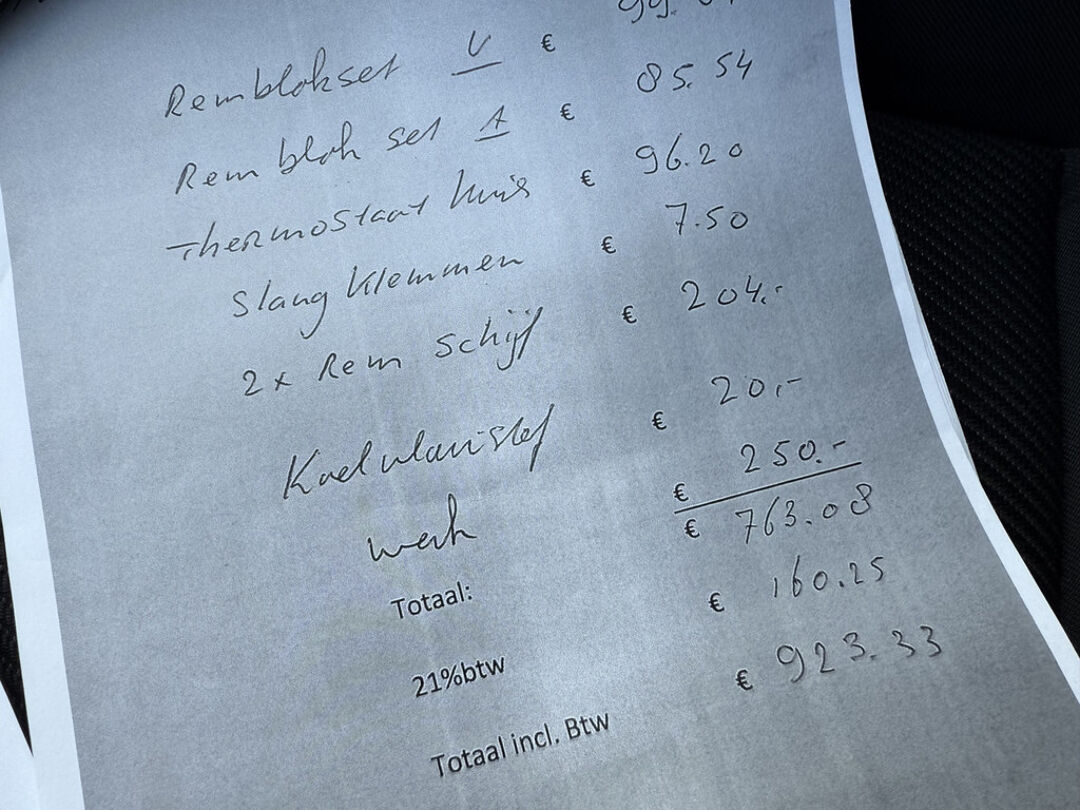 Remblokset V €
Remblok set A € 85.54
Thermostaat huis € 96.20
Slang Klemmen € 7.50
2x Rem schijf € 204.-
Koelvloeistof € 20,-
werk € 250.-
Totaal: € 763.08
21%btw € 160.25
Totaal incl. Btw € 923.33